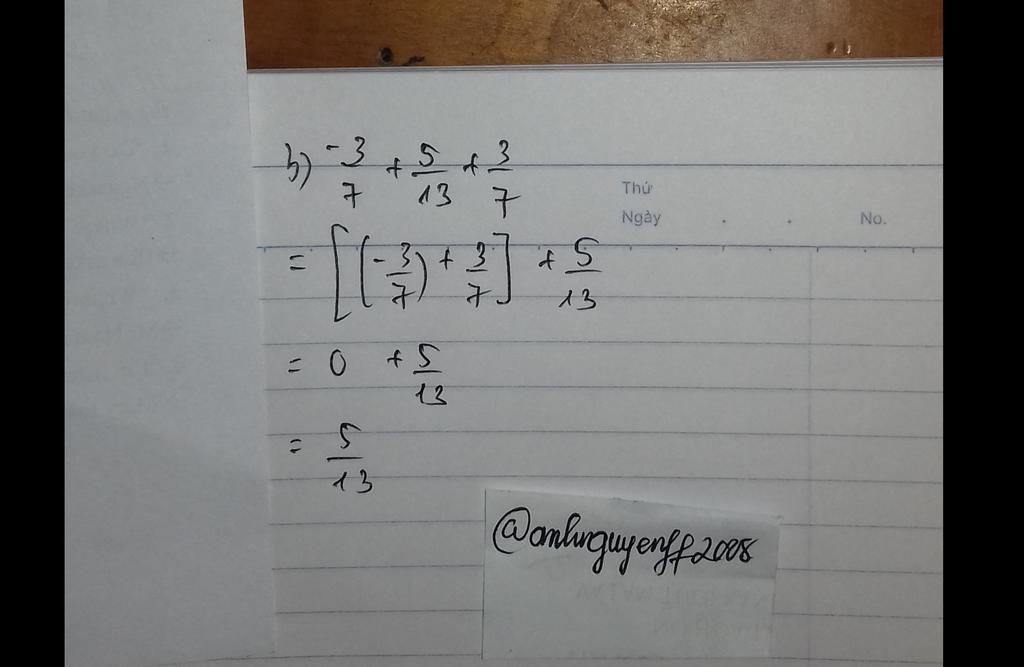 b) -3/7 + 5/13 + 3/7
Thứ
Ngày . . No.
= [(-3/7) + 3/7] + 5/13
= 0 + 5/13
= 5/13
@anhnguyenff2008